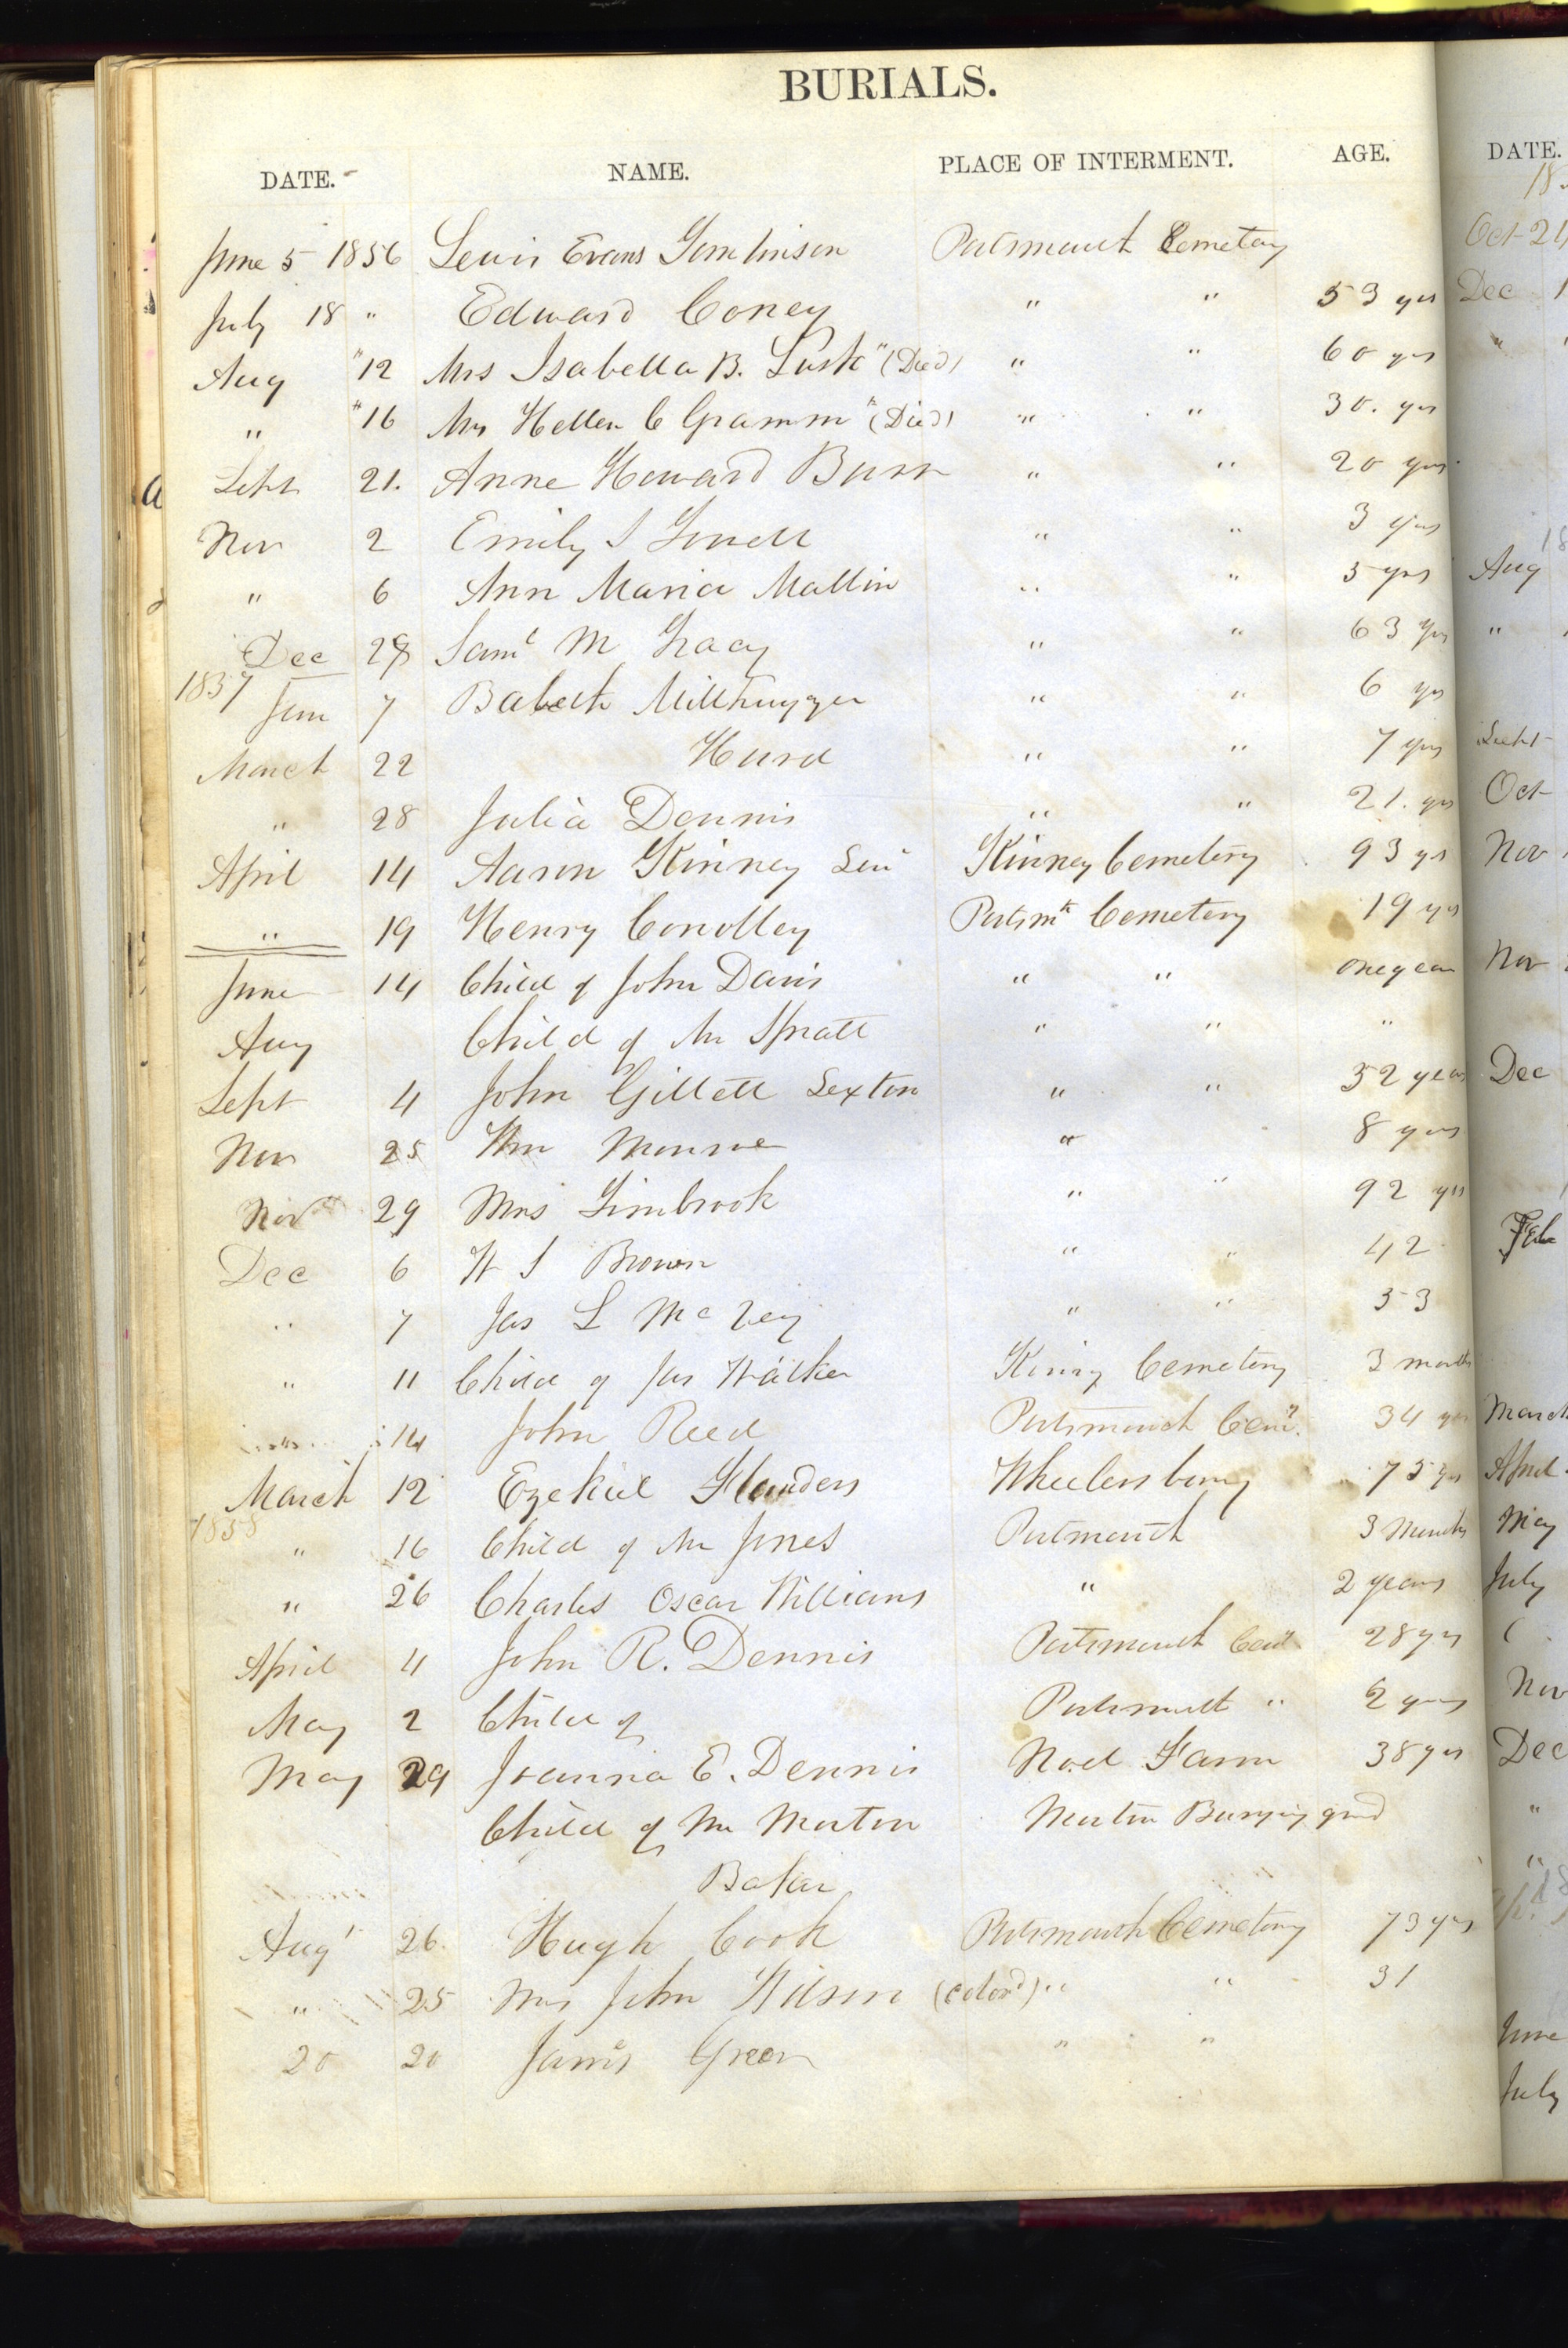 BURIALS.
DATE. NAME. PLACE OF INTERMENT. AGE.
June 5 1856 Lewis Evans Tomlinson Portsmouth Cemetery
July 18 " Edward Coney " " 53 yrs
Aug "12 Mrs Isabella B. Lusk "(Died) " " 60 yrs
" "16 Mrs Hellen C Gramm "(Died) " " 30. yrs
Sept 21. Anne Howard Burr " " 20 yrs
Nov 2 Emily S " " 3 yrs
" 6 Ann Maria Mallin " " 5 yrs
Dec 28 Saml M Tracy " " 63 yrs
1857 Jan 7 Babeth " " 6 yrs
March 22 Hurd " " 7 yrs
" 28 Julia Dennis " " 21. yrs
April 14 Aaron Kinney Senr Kinney Cemetery 93 yrs
" 19 Henry Conolley Portsmth Cemetery 19 yrs
June 14 Child of John Davis " " one year
Aug Child of Mr Spratt " " "
Sept 4 John Gillett Sexton " " 52 years
Nov 25 Wm Monroe " 8 yrs
Nov 29 Mrs Timbrook " " 92 yrs
Dec 6 W S Brown " " 42
" 7 Jas L McVey " " 53
" 11 Child of Jas Walker Kinny Cemetery 3 months
" 14 John Reed Portsmouth Cemy. 34 yrs
March 12 Ezekiel Flanders Wheelersburg 75 yrs
1858
" 16 Child of Mr Jones Portsmouth 3 Months
" 26 Charles Oscar Williams " 2 years
April 4 John R. Dennis Portsmouth Cemy 28 yrs
May 2 Child of Portsmouth " 2 yrs
May 29 Joanna E. Dennis Noel Farm 38 yrs
Child of Mr Morton Morton Burying grnd
Baker
Augt 26. Hugh Cook Portsmouth Cemetery 73 yrs
" 25 Mrs John Wilson (colord) " " 31
20 20 James Green " "
DATE.
Oct 21
Dec 1
"
Aug
"
Sept
Oct
Nov
Nov
Dec
Feb
March
April
May
July
Nov
Dec
"
"
June
July